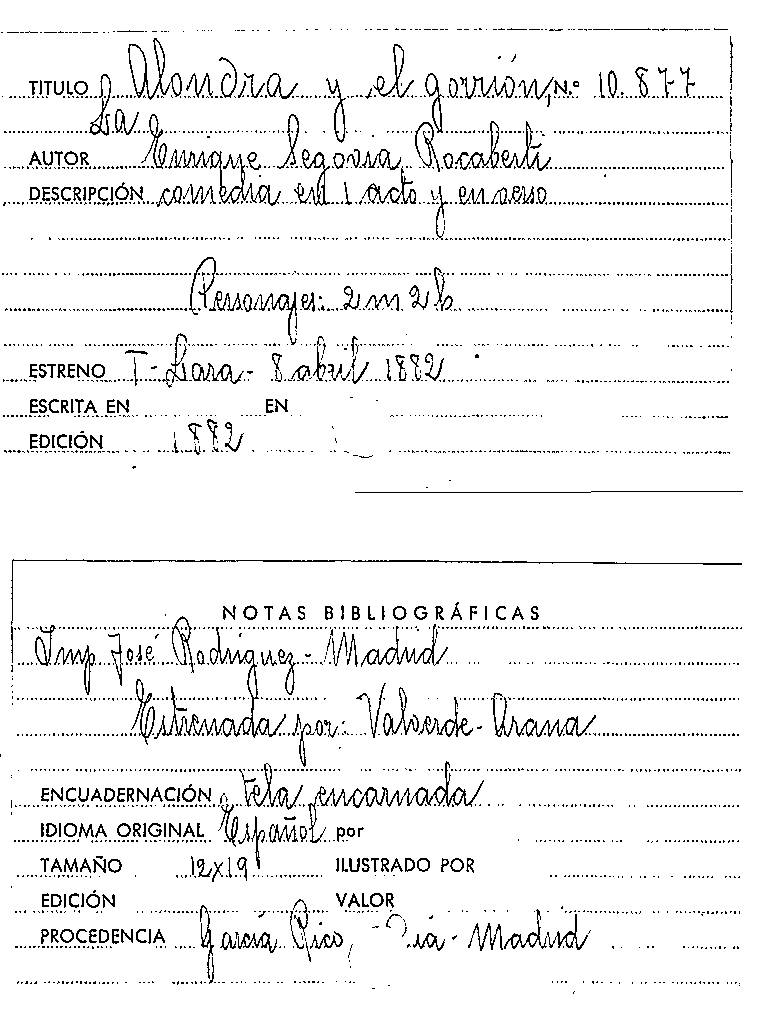 TITULO Alondra y el gorrión, N.º 10.877
La
AUTOR Enrique Segovia Rocaberti
DESCRIPCIÓN comedia en 1 acto y en verso
Personajes: 2 m 2 h
ESTRENO T - Lara - 8 abril 1882
ESCRITA EN EN
EDICIÓN 1882
NOTAS BIBLIOGRÁFICAS
Imp José Rodriguez - Madrid
Estrenada por: Valverde - Arana
ENCUADERNACIÓN tela encarnada
IDIOMA ORIGINAL Español por
TAMAÑO 12x19 ILUSTRADO POR
EDICIÓN VALOR
PROCEDENCIA García Rico, - Madrid